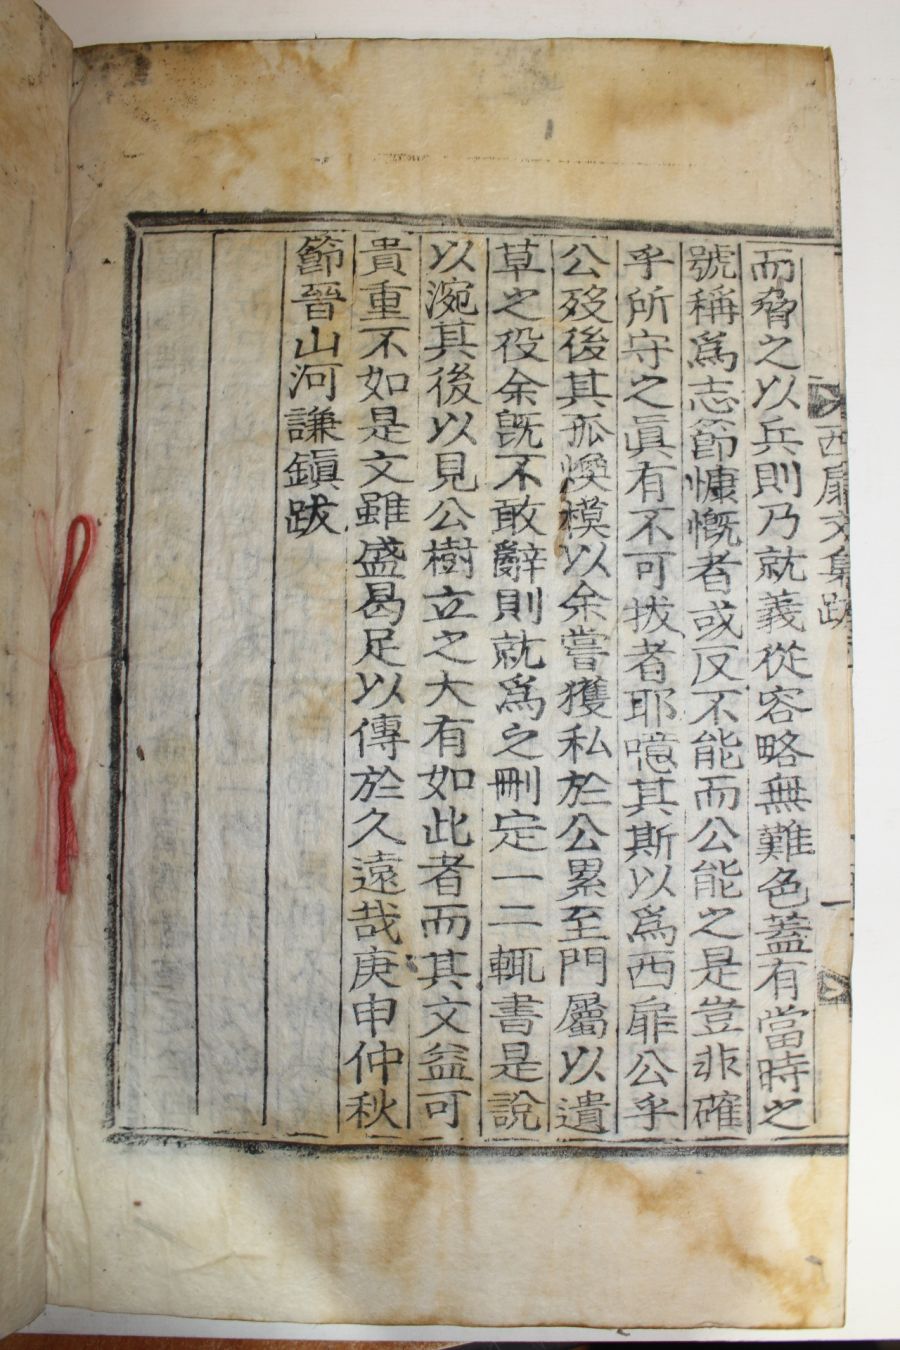 西扉文集跋
一
而脅之以兵則乃就義從容略無難色蓋有當時之
號稱爲志節慷慨者或反不能而公能之是豈非確
乎所守之眞有不可拔者耶噫其斯以爲西扉公乎
公歿後其孤煥模以余嘗獲私於公累至門屬以遺
草之役余旣不敢辭則就爲之刪定一二輒書是說
以涴其後以見公樹立之大有如此者而其文益可
貴重不如是文雖盛曷足以傳於久遠哉庚申仲秋
節晉山河謙鎭跋